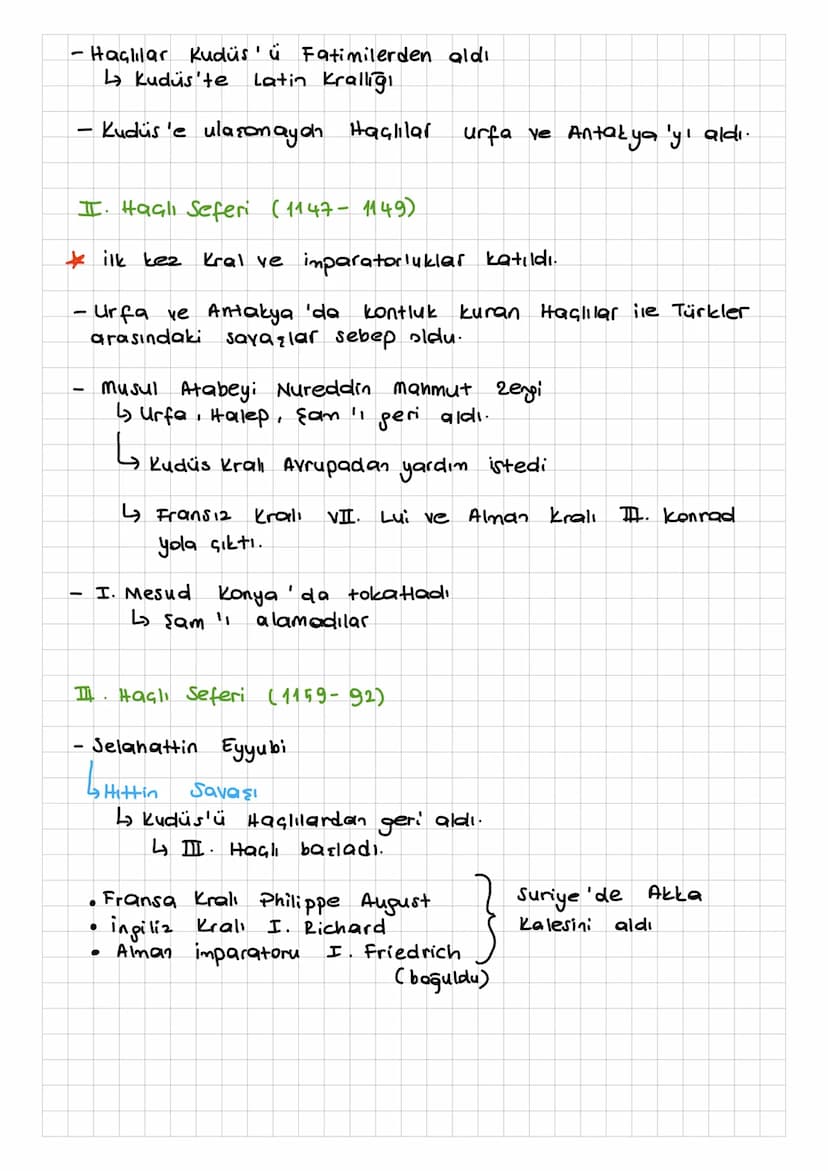 - Haçlılar Kudüs'ü Fatimilerden aldı
↳ Kudüs'te Latin Krallığı
- Kudüs'e ulaşamayan Haçlılar urfa ve Antakya'yı aldı.
II. Haçlı Seferi (1147- 1149)
★ ilk kez Kral ve imparatorluklar katıldı.
- Urfa ve Antakya'da kontluk kuran Haçlılar ile Türkler
arasındaki savaşlar sebep oldu.
- Musul Atabeyi Nureddin Mahmut Zengi
↳ Urfa, Halep, Şam'ı geri aldı.
↳ Kudüs Kralı Avrupadan yardım istedi
↳ Fransız Kralı VII. Lui ve Alman Kralı III. Konrad
yola çıktı.
- I. Mesud Konya'da tokatladı
↳ Şam'ı alamadılar
III. Haçlı Seferi (1159- 92)
- Selahattin Eyyubi
↳ Hıttin Savaşı
↳ Kudüs'ü Haçlılardan geri aldı.
↳ III. Haçlı başladı.
• Fransa Kralı Philippe August
• ingiliz Kralı I. Richard
• Alman imparatoru I. Friedrich
(boğuldu)
Suriye'de Akka
Kalesini aldı